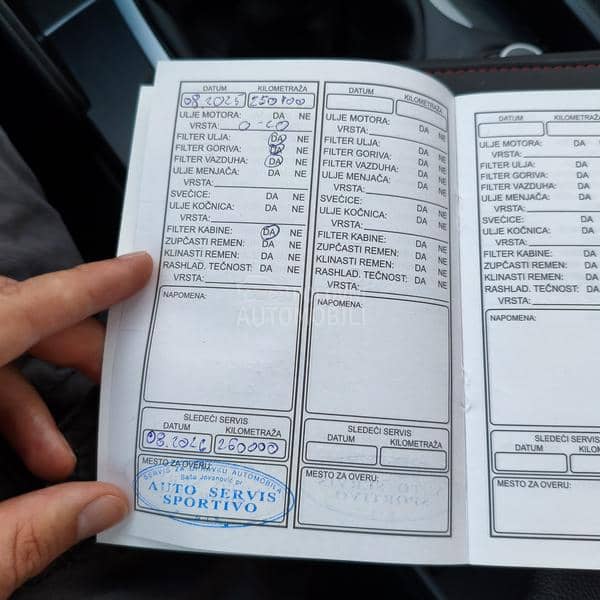 DATUM KILOMETRAŽA
08.2025 250 700
ULJE MOTORA: DA NE
VRSTA: 0-20
FILTER ULJA: DA NE
FILTER GORIVA: DA NE
FILTER VAZDUHA: DA NE
ULJE MENJAČA: DA NE
VRSTA:
SVEĆICE: DA NE
ULJE KOČNICA: DA NE
VRSTA:
FILTER KABINE: DA NE
ZUPČASTI REMEN: DA NE
KLINASTI REMEN: DA NE
RASHLAD. TEČNOST: DA NE
VRSTA:
NAPOMENA:
SLEDEĆI SERVIS
DATUM KILOMETRAŽA
08.2026 260000
MESTO ZA OVERU:
SERVIS ZA OPRAVKU AUTOMOBILA
Saša Jovanović pr
AUTO SERVIS
SPORTIVO
DATUM KILOMETRAŽA
ULJE MOTORA: DA NE
VRSTA:
FILTER ULJA: DA NE
FILTER GORIVA: DA NE
FILTER VAZDUHA: DA NE
ULJE MENJAČA: DA NE
VRSTA:
SVEĆICE: DA NE
ULJE KOČNICA: DA NE
VRSTA:
FILTER KABINE: DA NE
ZUPČASTI REMEN: DA NE
KLINASTI REMEN: DA NE
RASHLAD. TEČNOST: DA NE
VRSTA:
NAPOMENA:
SLEDEĆI SERVIS
DATUM KILOMETRAŽA
MESTO ZA OVERU:
DATUM KILOMETRAŽA
ULJE MOTORA: DA
VRSTA:
FILTER ULJA: DA NE
FILTER GORIVA: DA NE
FILTER VAZDUHA: DA NE
ULJE MENJAČA: DA NE
VRSTA:
SVEĆICE: DA NE
ULJE KOČNICA: DA NE
VRSTA:
FILTER KABINE: DA NE
ZUPČASTI REMEN: DA NE
KLINASTI REMEN: DA NE
RASHLAD. TEČNOST: DA NE
VRSTA:
NAPOMENA:
SLEDEĆI SERVIS
DATUM KILOM
MESTO ZA OVERU:
AUTOMOBILI